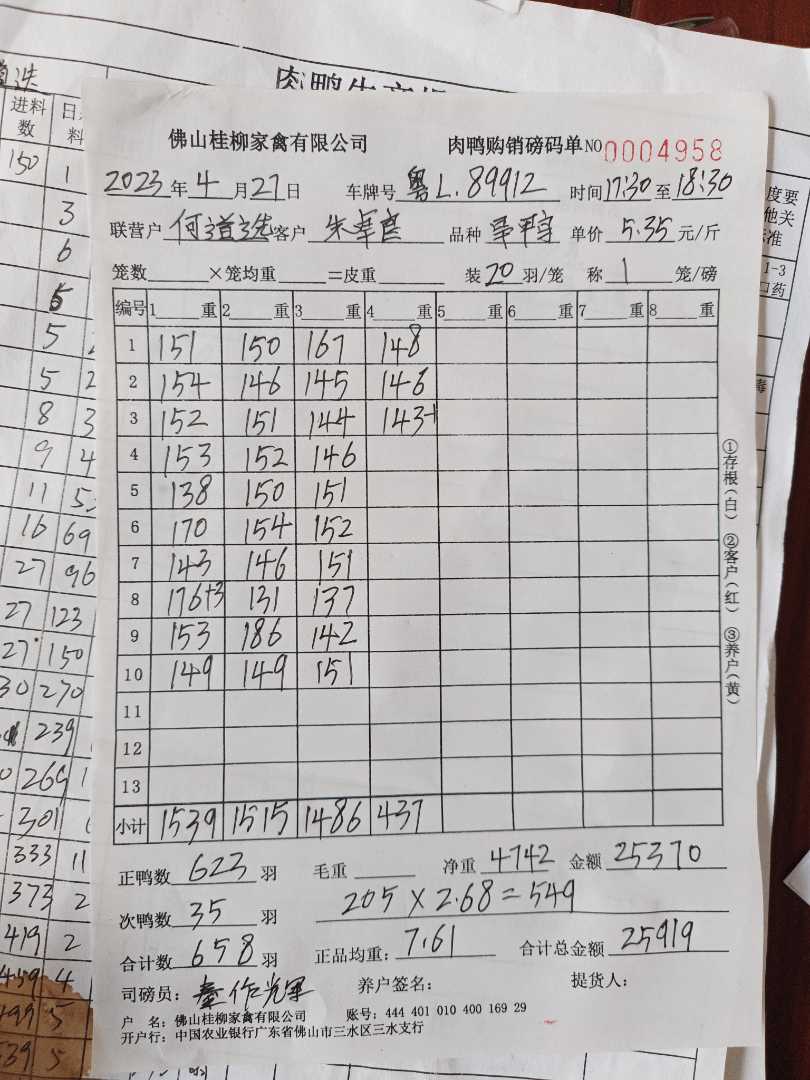 肉鸭生产
进料数 日 料
150 1
3
6
5
5
5
8
9
11
16 69
27 96
27 123
27 150
30 270
239
269 1
301
333 11
373 2
419 2
459 4
499 5
539 5
度要
他关
标准
1-3
口药
毒
佛山桂柳家禽有限公司 肉鸭购销磅码单NO 0004958
2023年4月27日 车牌号 粤L.89912 时间17:30至18:30
联营户 何道选 客户 朱 品种 单价 5.35 元/斤
笼数 ×笼均重 =皮重 装20羽/笼 称 1 笼/磅
编号 1 重 2 重 3 重 4 重 5 重 6 重 7 重 8 重
1 151 150 167 148
2 154 146 145 146
3 152 151 144 143-1
4 153 152 146
5 138 150 151
6 170 154 152
7 143 146 151
8 176+3 131 137
9 153 186 142
10 149 149 151
11
12
13
小计 1539 1515 1486 437
正鸭数 623 羽 毛重 净重 4742 金额 25370
次鸭数 35 羽 205 × 2.68 = 549
合计数 658 羽 正品均重: 7.61 合计总金额 25919
司磅员: 养户签名: 提货人:
户 名: 佛山桂柳家禽有限公司 账号: 444 401 010 400 169 29
开户行: 中国农业银行广东省佛山市三水区三水支行
①存根(白) ②客户(红) ③养户(黄)